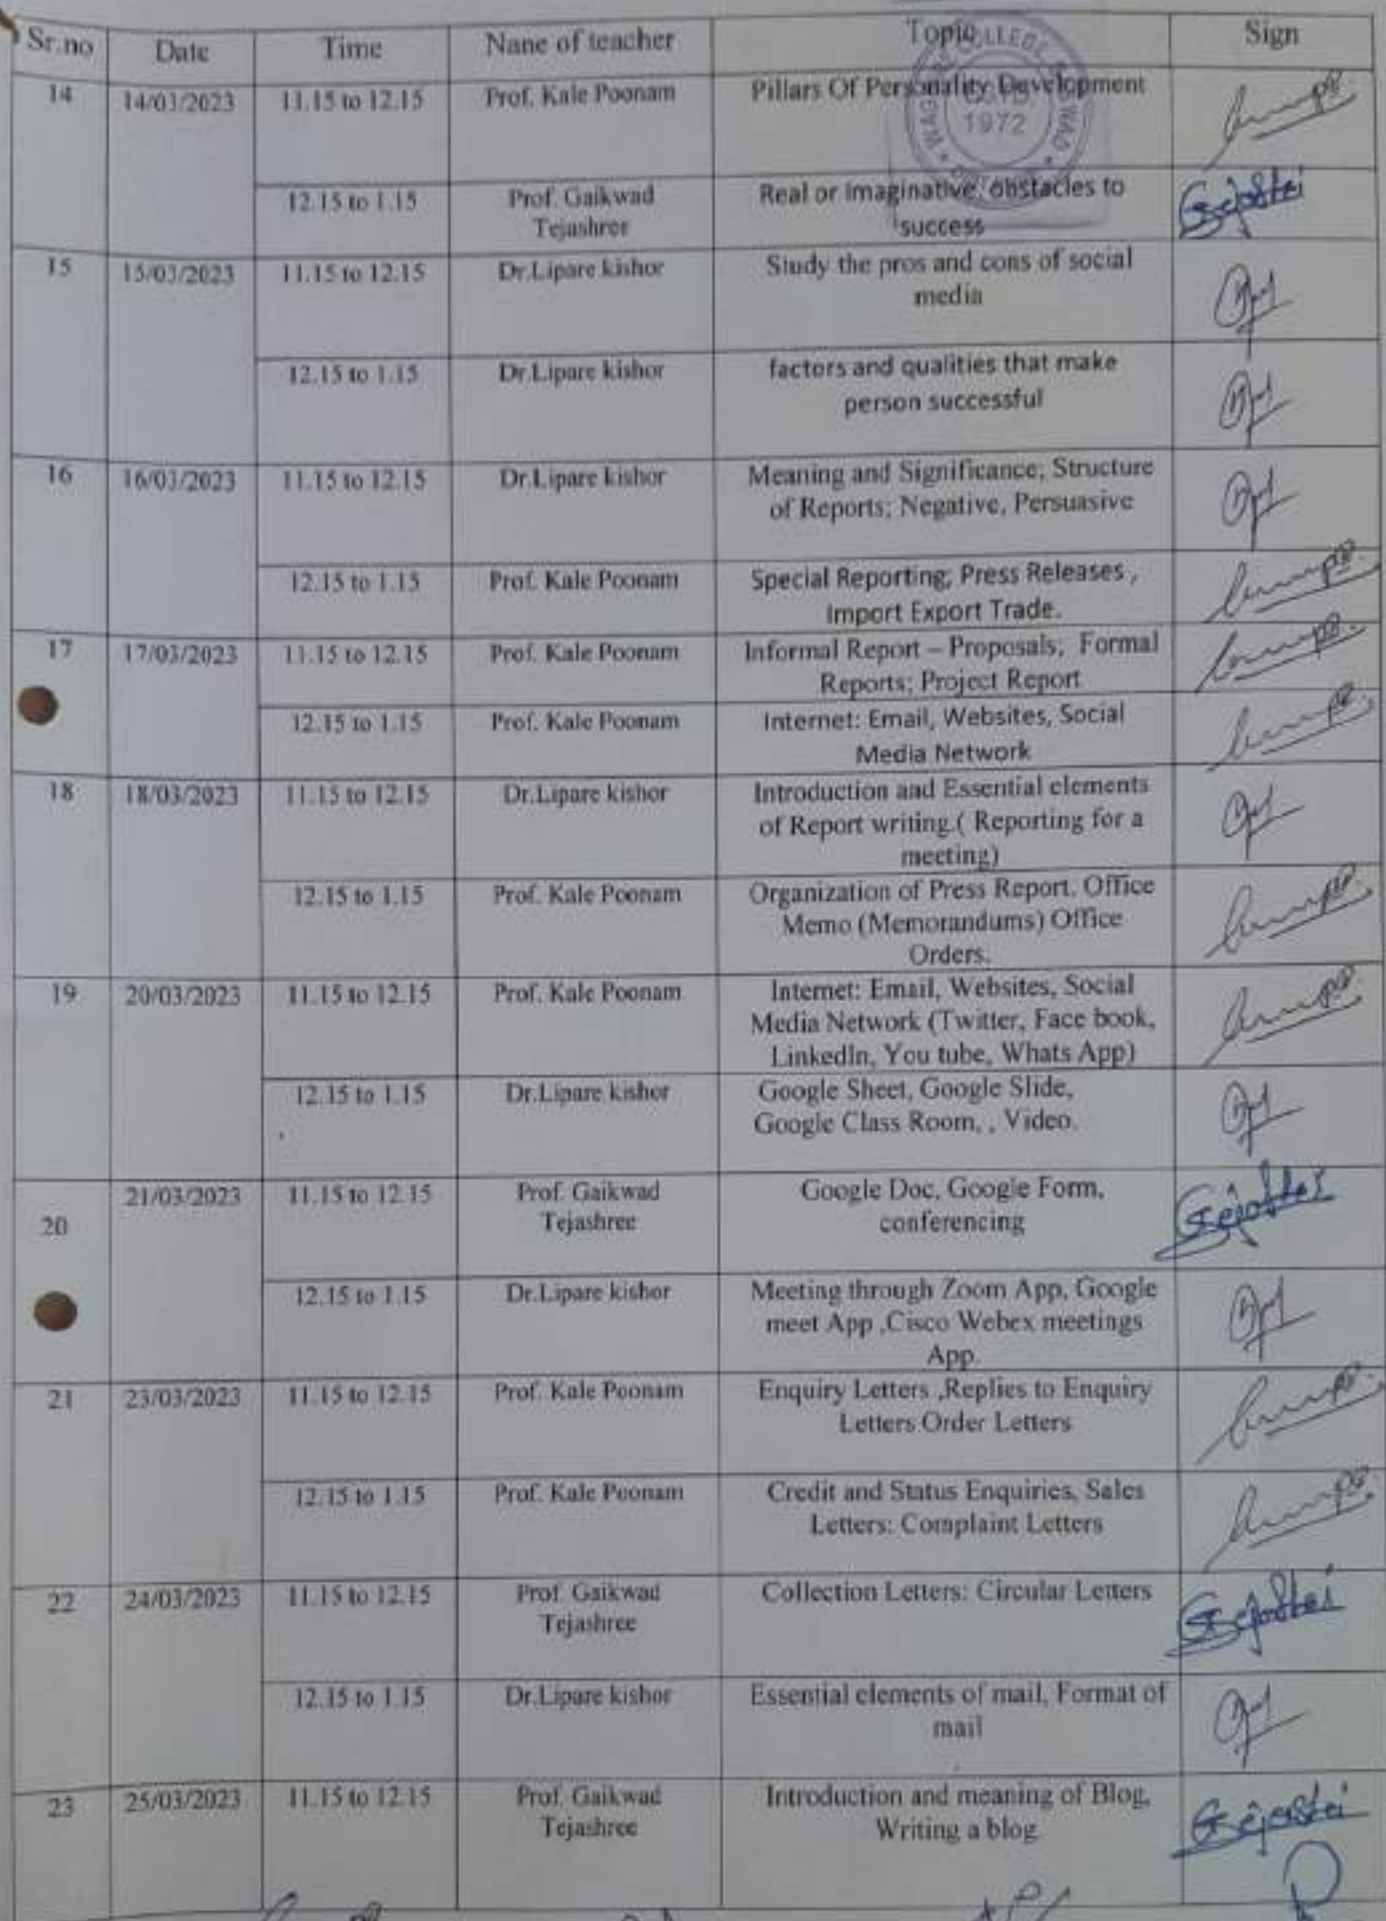 Sr.no Date Time Nane of teacher Topic Sign
14 14/03/2023 11.15 to 12.15 Prof. Kale Poonam Pillars Of Personality Development
1972
12.15 to 1.15 Prof. Gaikwad Real or Imaginative, obstacles to
Tejashree success
15 15/03/2023 11.15 to 12.15 Dr.Lipare kishor Study the pros and cons of social
media
12.15 to 1.15 Dr.Lipare kishor factors and qualities that make
person successful
16 16/03/2023 11.15 to 12.15 Dr.Lipare kishor Meaning and Significance; Structure
of Reports; Negative, Persuasive
12.15 to 1.15 Prof. Kale Poonam Special Reporting; Press Releases ,
Import Export Trade.
17 17/03/2023 11.15 to 12.15 Prof. Kale Poonam Informal Report – Proposals; Formal
Reports; Project Report
12.15 to 1.15 Prof. Kale Poonam Internet: Email, Websites, Social
Media Network
18 18/03/2023 11.15 to 12.15 Dr.Lipare kishor Introduction and Essential elements
of Report writing.( Reporting for a
meeting)
12.15 to 1.15 Prof. Kale Poonam Organization of Press Report. Office
Memo (Memorandums) Office
Orders.
19 20/03/2023 11.15 to 12.15 Prof. Kale Poonam Internet: Email, Websites, Social
Media Network (Twitter, Face book,
LinkedIn, You tube, Whats App)
12.15 to 1.15 Dr.Lipare kishor Google Sheet, Google Slide,
Google Class Room, , Video.
20 21/03/2023 11.15 to 12.15 Prof. Gaikwad Google Doc, Google Form,
Tejashree conferencing
12.15 to 1.15 Dr.Lipare kishor Meeting through Zoom App, Google
meet App ,Cisco Webex meetings
App.
21 23/03/2023 11.15 to 12.15 Prof. Kale Poonam Enquiry Letters ,Replies to Enquiry
Letters.Order Letters
12.15 to 1.15 Prof. Kale Poonam Credit and Status Enquiries, Sales
Letters: Complaint Letters
22 24/03/2023 11.15 to 12.15 Prof. Gaikwad Collection Letters: Circular Letters
Tejashree
12.15 to 1.15 Dr.Lipare kishor Essential elements of mail, Format of
mail
23 25/03/2023 11.15 to 12.15 Prof. Gaikwad Introduction and meaning of Blog,
Tejashree Writing a blog